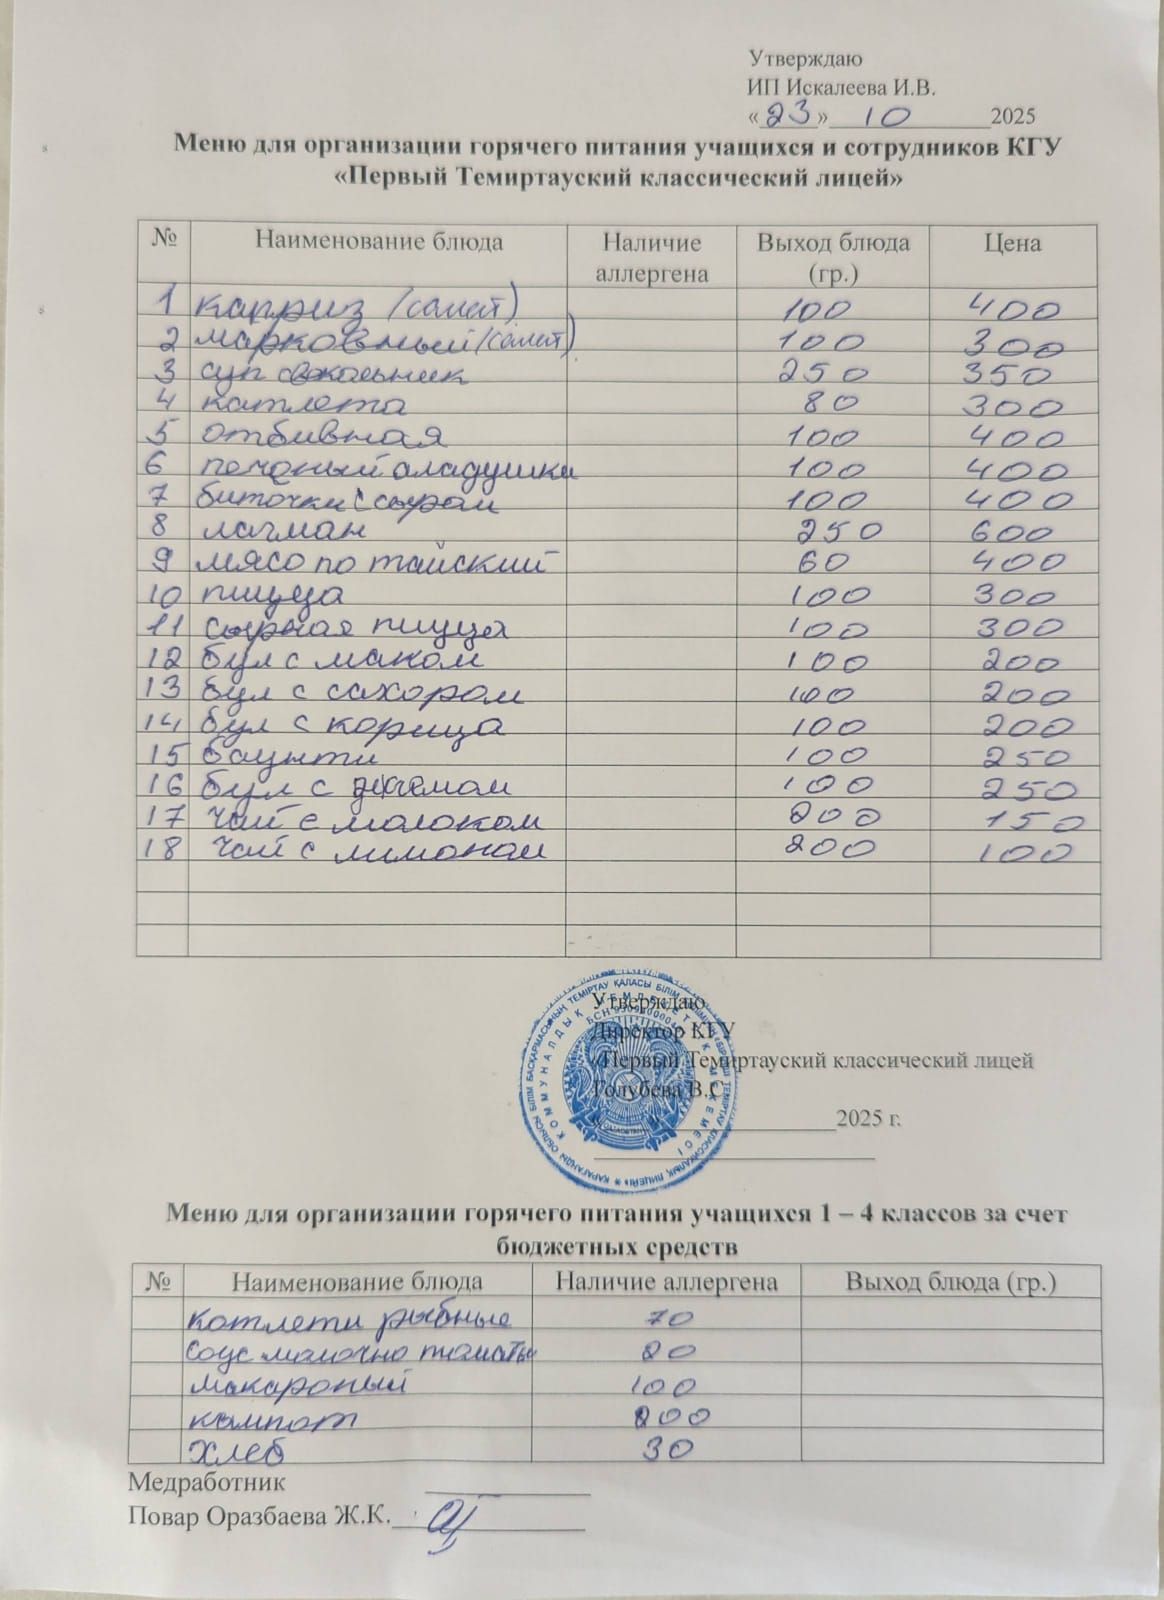 Утверждаю
ИП Искалеева И.В.
«23» 10 2025
Меню для организации горячего питания учащихся и сотрудников КГУ
«Первый Темиртауский классический лицей»
№ Наименование блюда Наличие аллергена Выход блюда (гр.) Цена
1 каприз (салат) 100 400
2 марковный (салат) 100 300
3 суп 250 350
4 катлета 80 300
5 отбивная 100 400
6 печоный аладушки 100 400
7 биточки с сыром 100 400
8 лагман 250 600
9 мясо по тайский 60 400
10 пицца 100 300
11 сырная пицца 100 300
12 бул с маком 100 200
13 бул с сахором 100 200
14 бул с корица 100 200
15 баунти 100 250
16 бул с джемом 100 250
17 чай с молоком 200 150
18 чай с лимоном 200 100
Утверждаю
Директор КГУ
«Первый Темиртауский классический лицей
Голубева В.С.
2025 г.
Меню для организации горячего питания учащихся 1 – 4 классов за счет
бюджетных средств
№ Наименование блюда Наличие аллергена Выход блюда (гр.)
котлети рыбные 70
соус молочно томатны 20
макароный 100
кампот 200
хлеб 30
Медработник
Повар Оразбаева Ж.К.